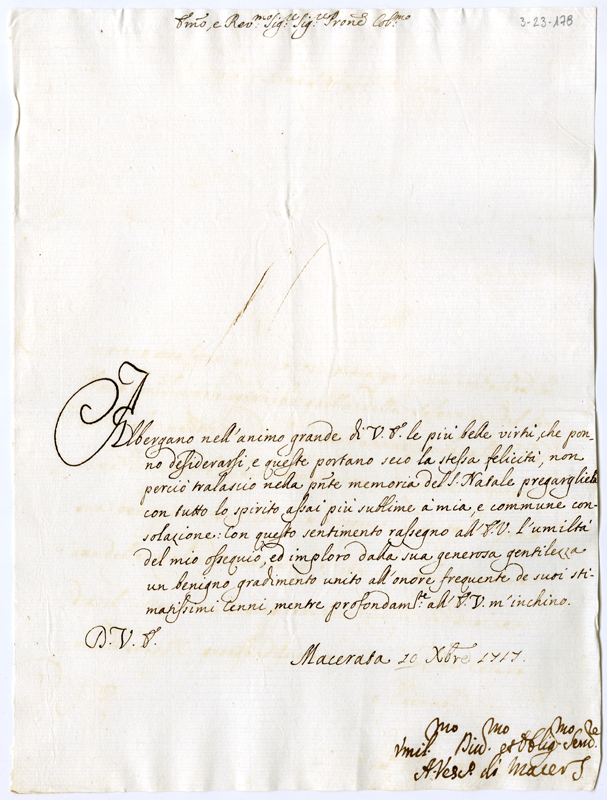 Emo, e Revmo Sigre Sigre Prone Colmo
3-23-178
Albergano nell'animo grande di V. E. le più belle virtù, che pon-
no desiderarsi, e queste portano seco la stessa felicità, non
perciò tralascio nella pnte memoria del S. Natale pregargliela
con tutto lo spirito assai più sublime à mia, e commune con-
solazione: Con questo sentimento rassegno all'E. V. l'umiltà
del mio ossequio, ed imploro dalla sua generosa gentilezza
un benigno gradimento unito all'onore frequente de suoi sti-
matissimi Cenni, mentre profondamte all'E. V. m'inchino.
D. V. E.
Macerata 20 Xbre 1717.
Umilmo Divmo et Obligmo Servre
A. Vesco di Macer